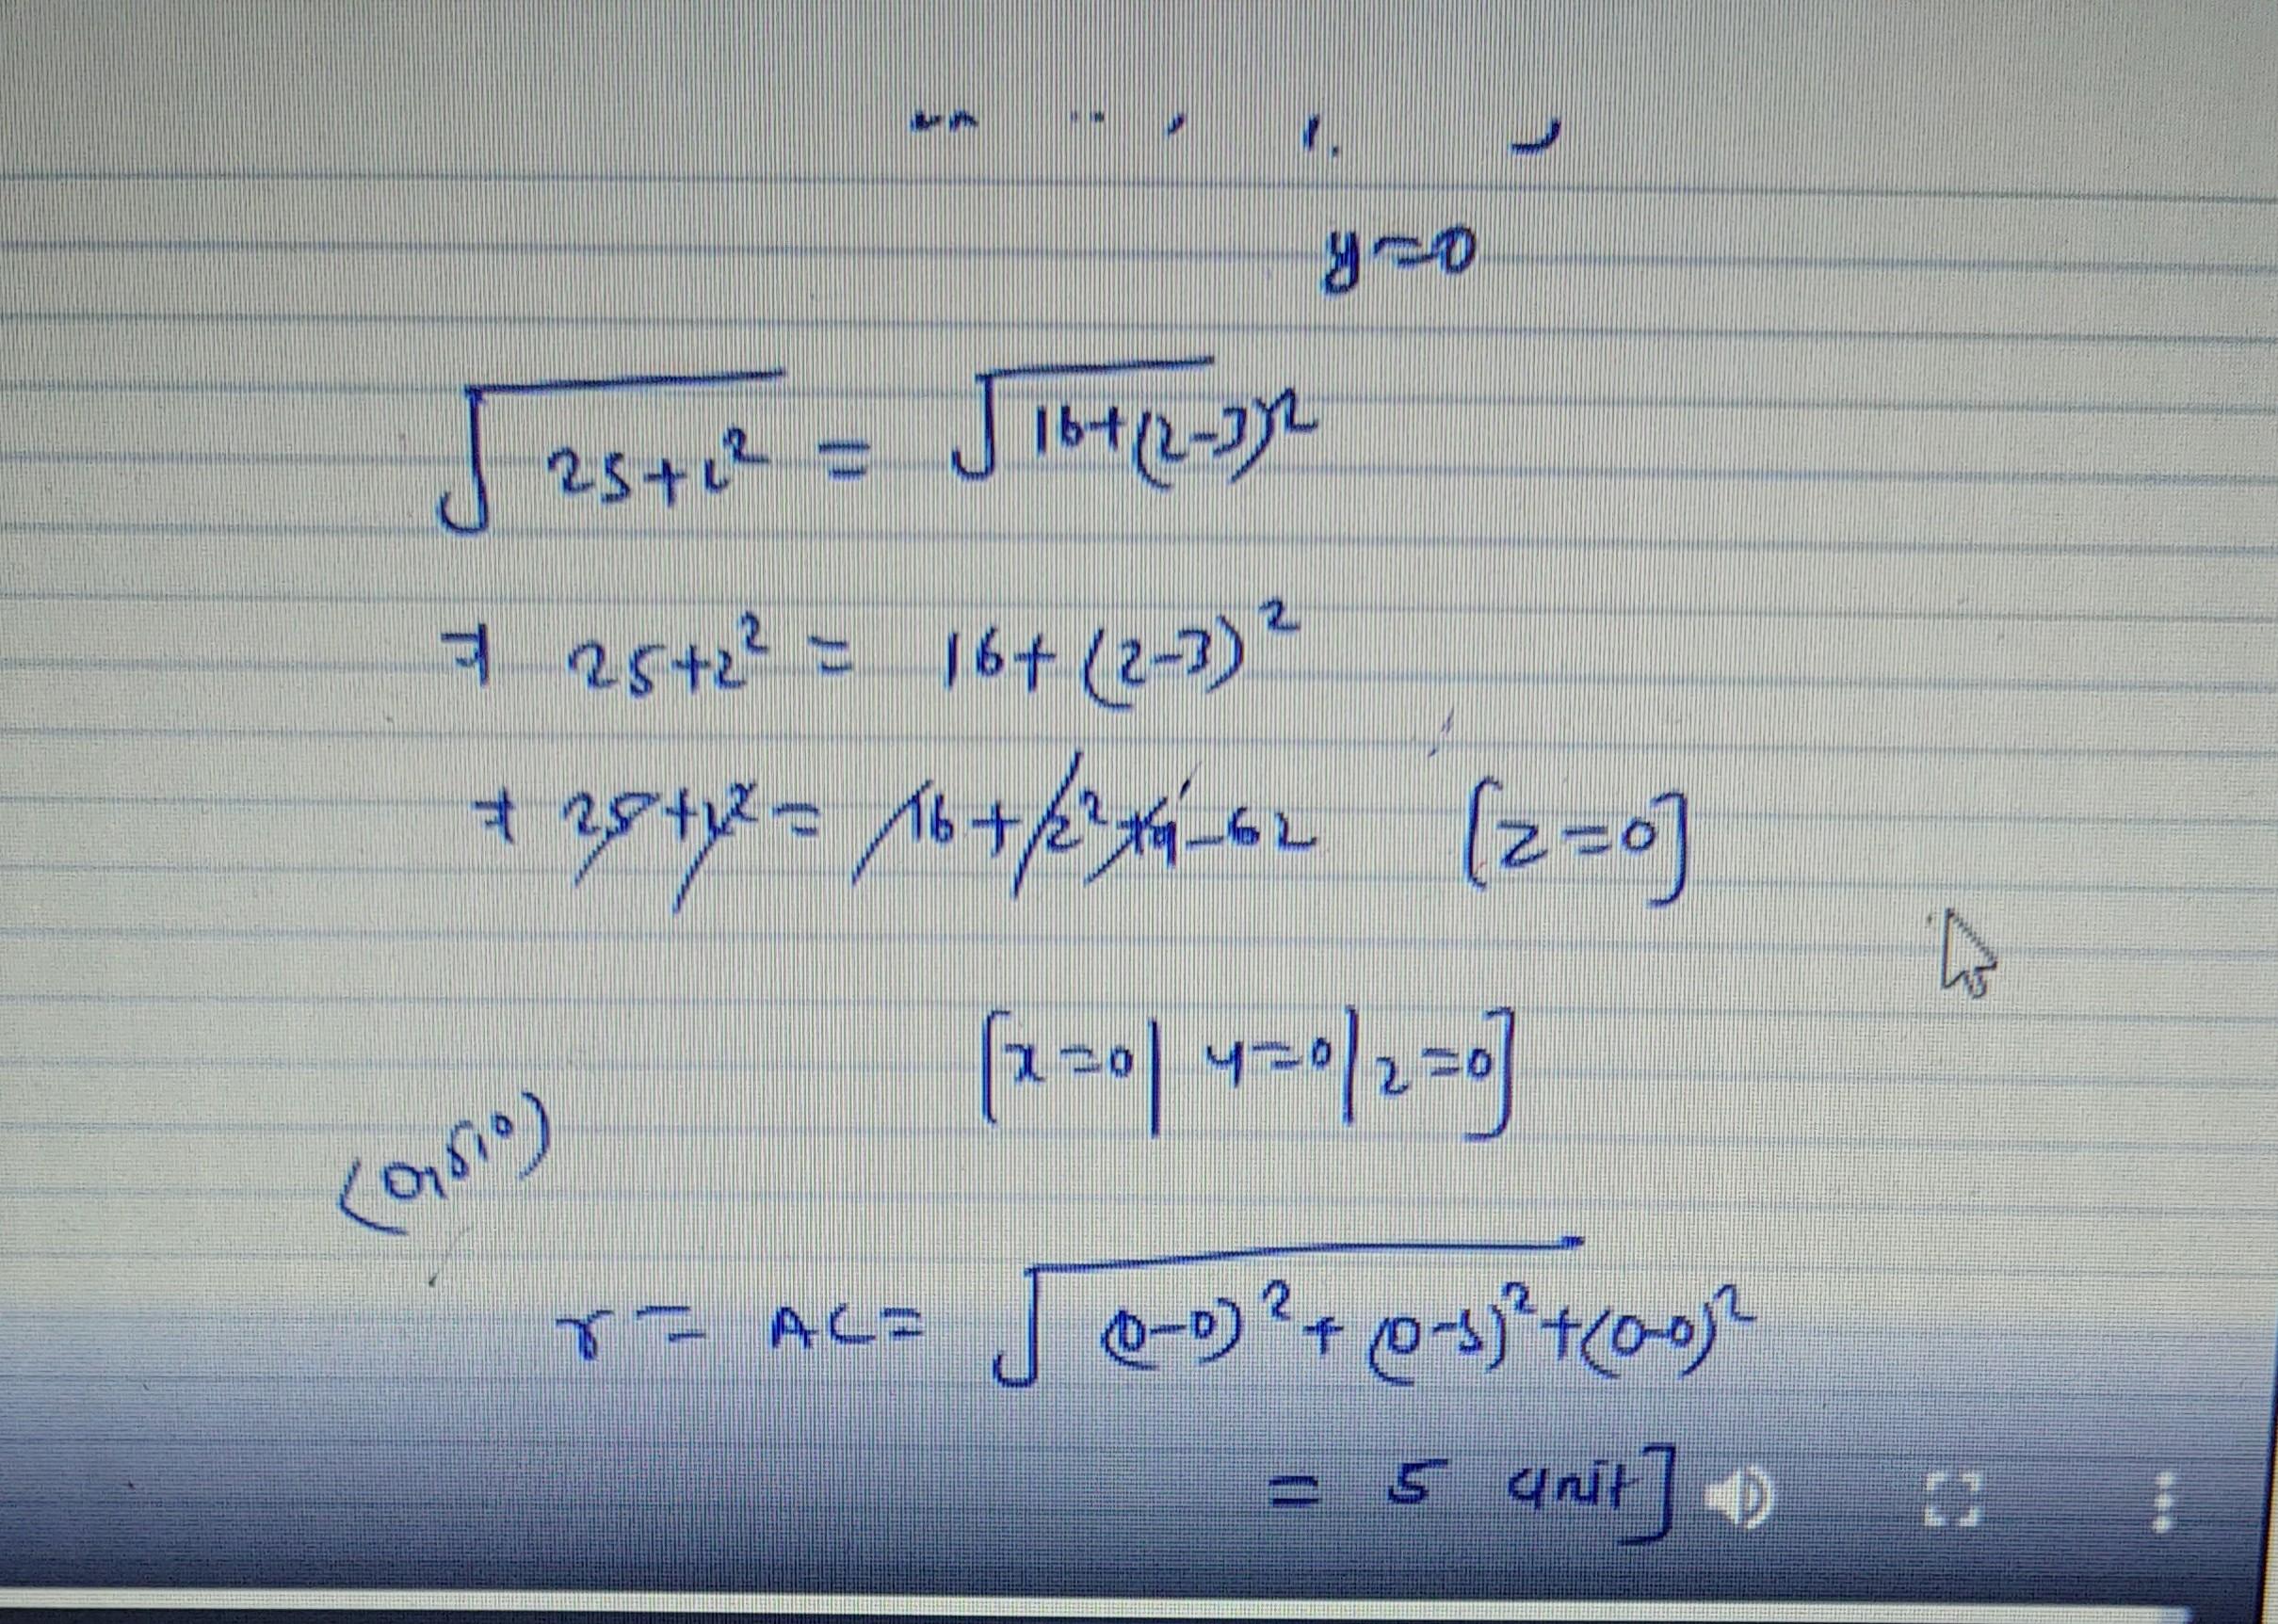 y=0
√25+z² = √16+(z-3)²
⇒ 25+z² = 16+(z-3)²
⇒ 25+z² = 16+z²+9-6z [z=0]
[x=0| y=0|z=0]
(0,5,0)
r= AC= √(0-0)²+(0-5)²+(0-0)²
= 5 unit]